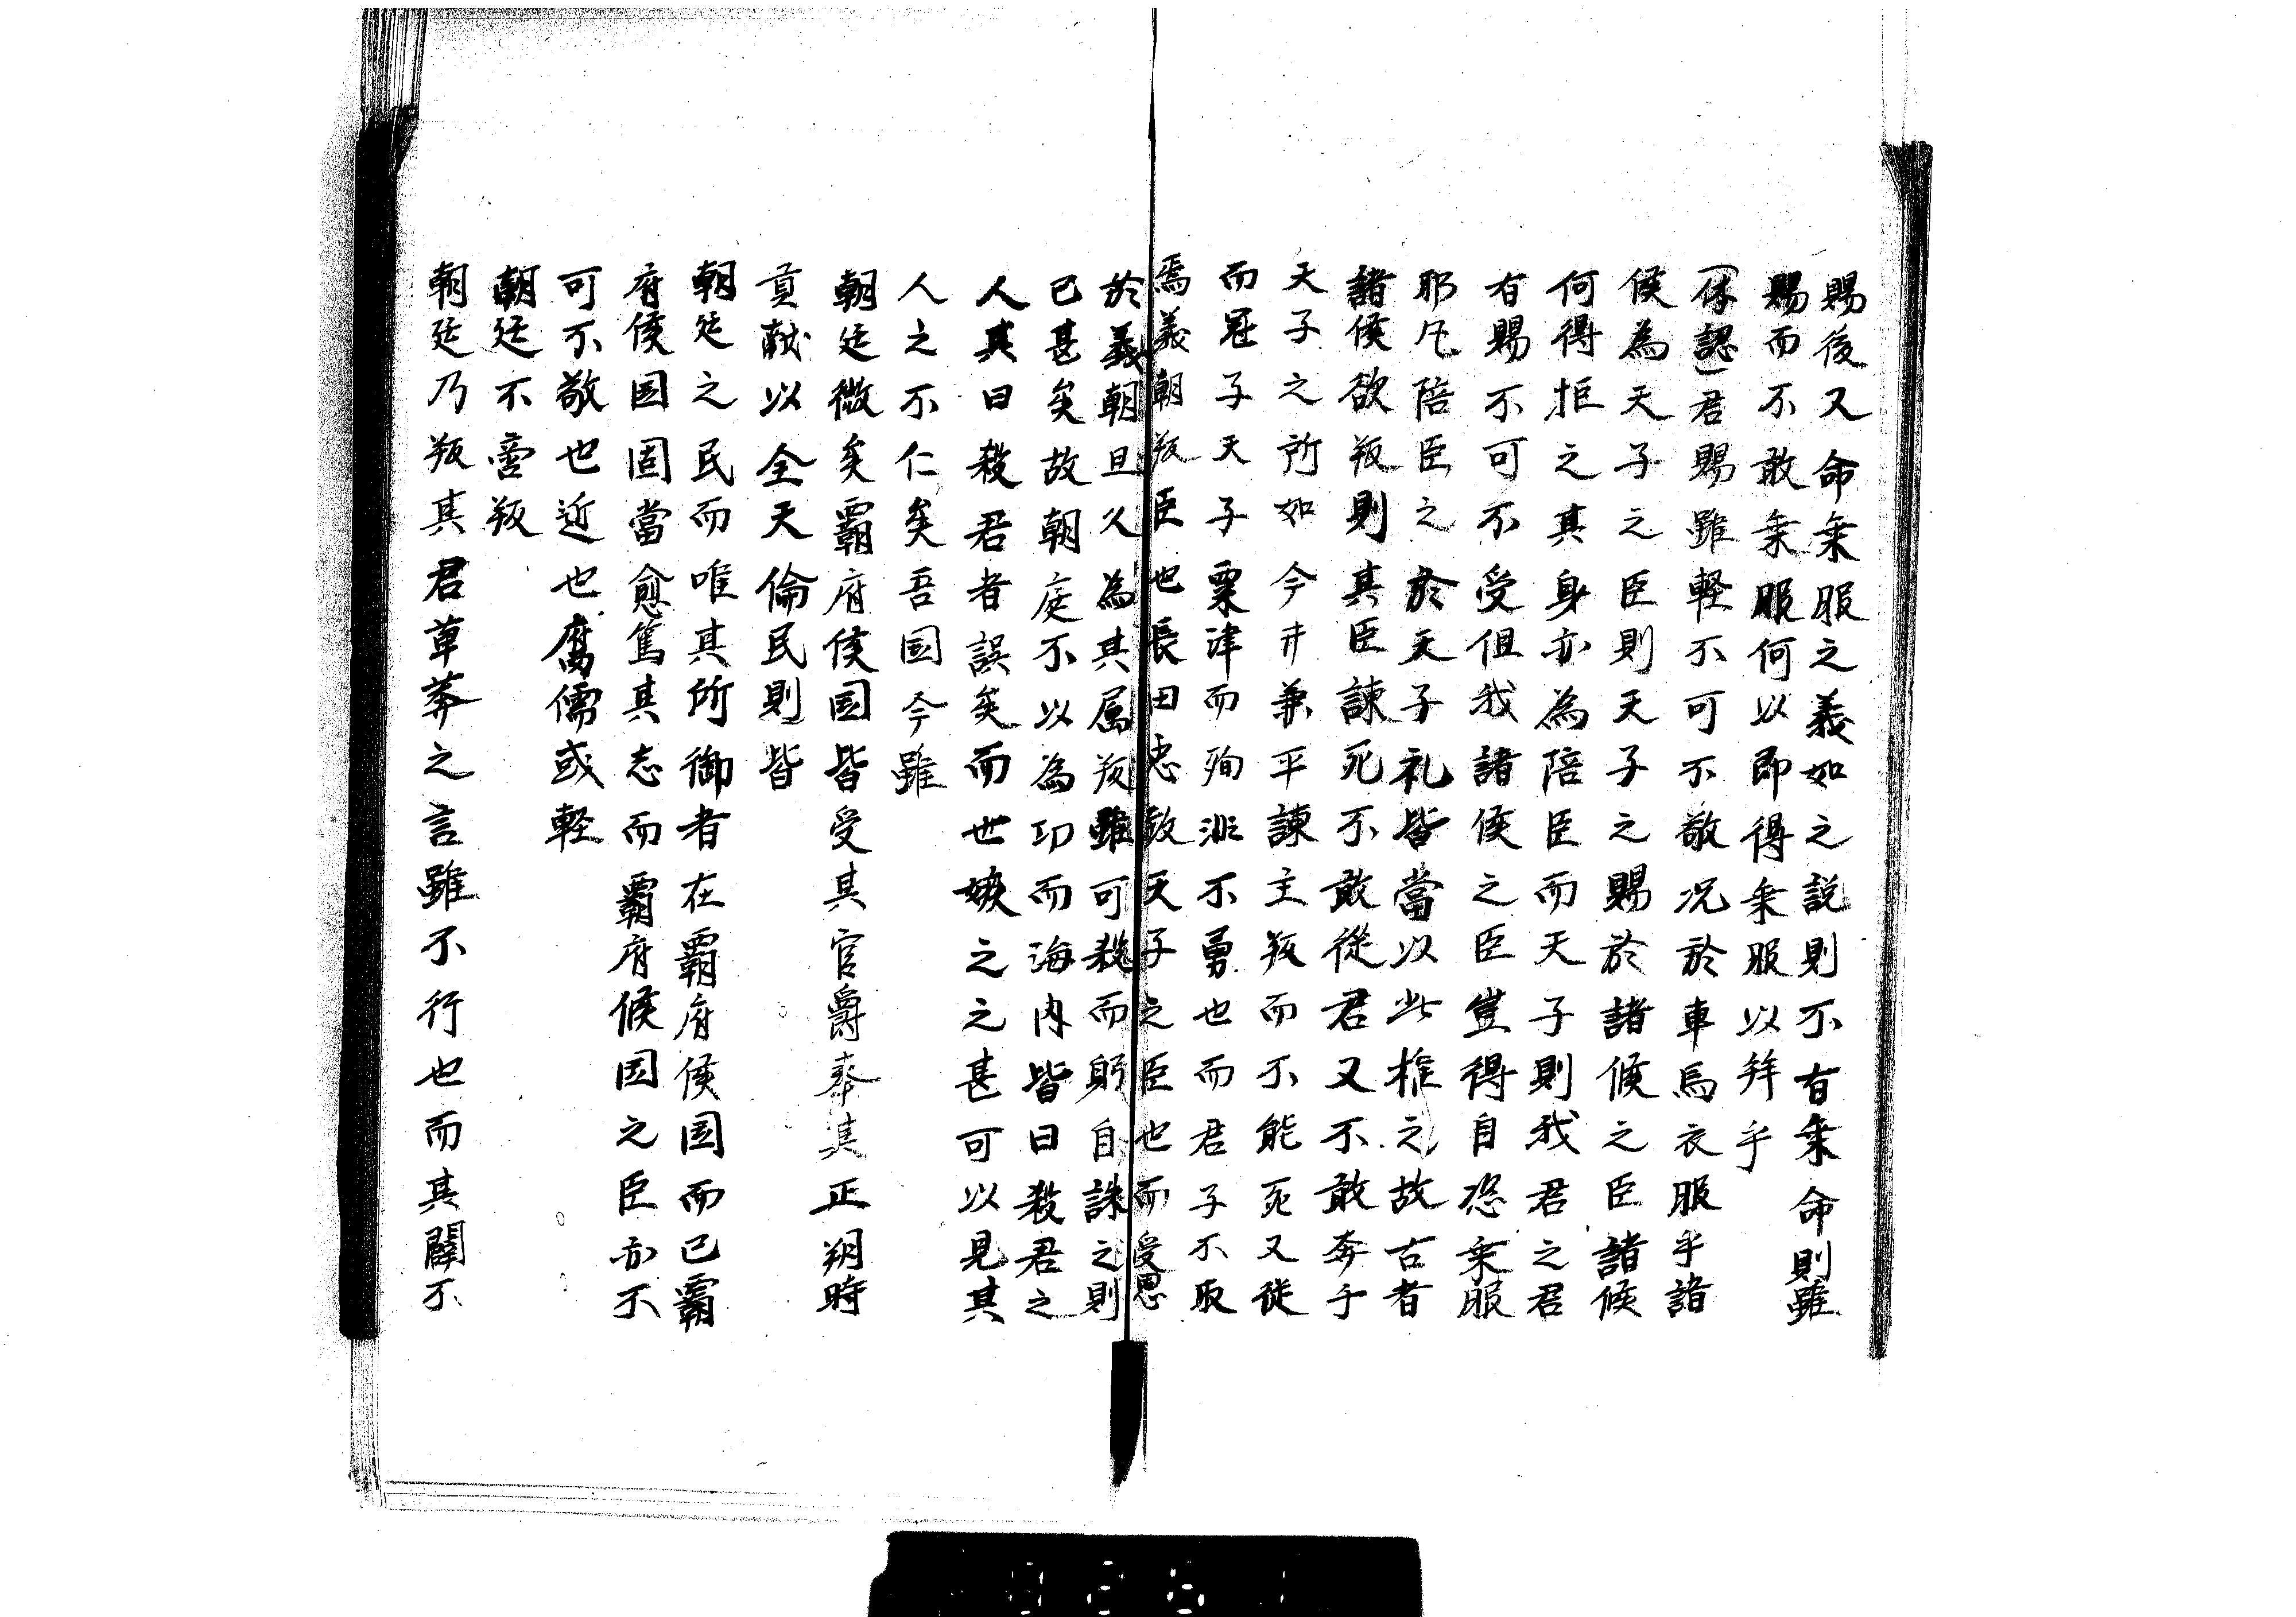 賜後又命乗服之義如之説則不有乗命則雖
賜而不敢乗服何以即得乗服以拜乎
君賜雖軽不可不敬况於車馬衣服乎諸
侯為天子之臣則天子之賜於諸候之臣諸候
何得拒之其身亦為陪臣而天子則我君之君
有賜不可不受但我諸侯之臣豈得自恣乗服
耶凡陪臣之於天子礼皆當以此推之故古者
諸侯欲叛則其臣諌死不敢從君又不敢奔于
天子之所如今井兼平諌主叛而不能死又従
而冠子天子粟津而殉淤不勇也而君子不取
焉義朝叛臣也長田忠致天子之臣也而受恩
於義朝且久為其属叛雖可殺而躬自誅之則
已甚矣故朝庭不以為功而海内皆曰殺君之
人其曰殺君者誤矣而世嫉之之甚可以見其
人之不仁矣吾国今雖
朝廷微矣覇府侯国皆受其官爵奉其正朔時
貢献以全天倫民則皆
朝廷之民而唯其所御者在覇府侯国而已覇
府侯国固當愈篤其志而覇府候国之臣亦不
可不敬也近也腐儒或軽
朝廷不啻叛
朝廷乃叛其君草莽之言雖不行也而其關不